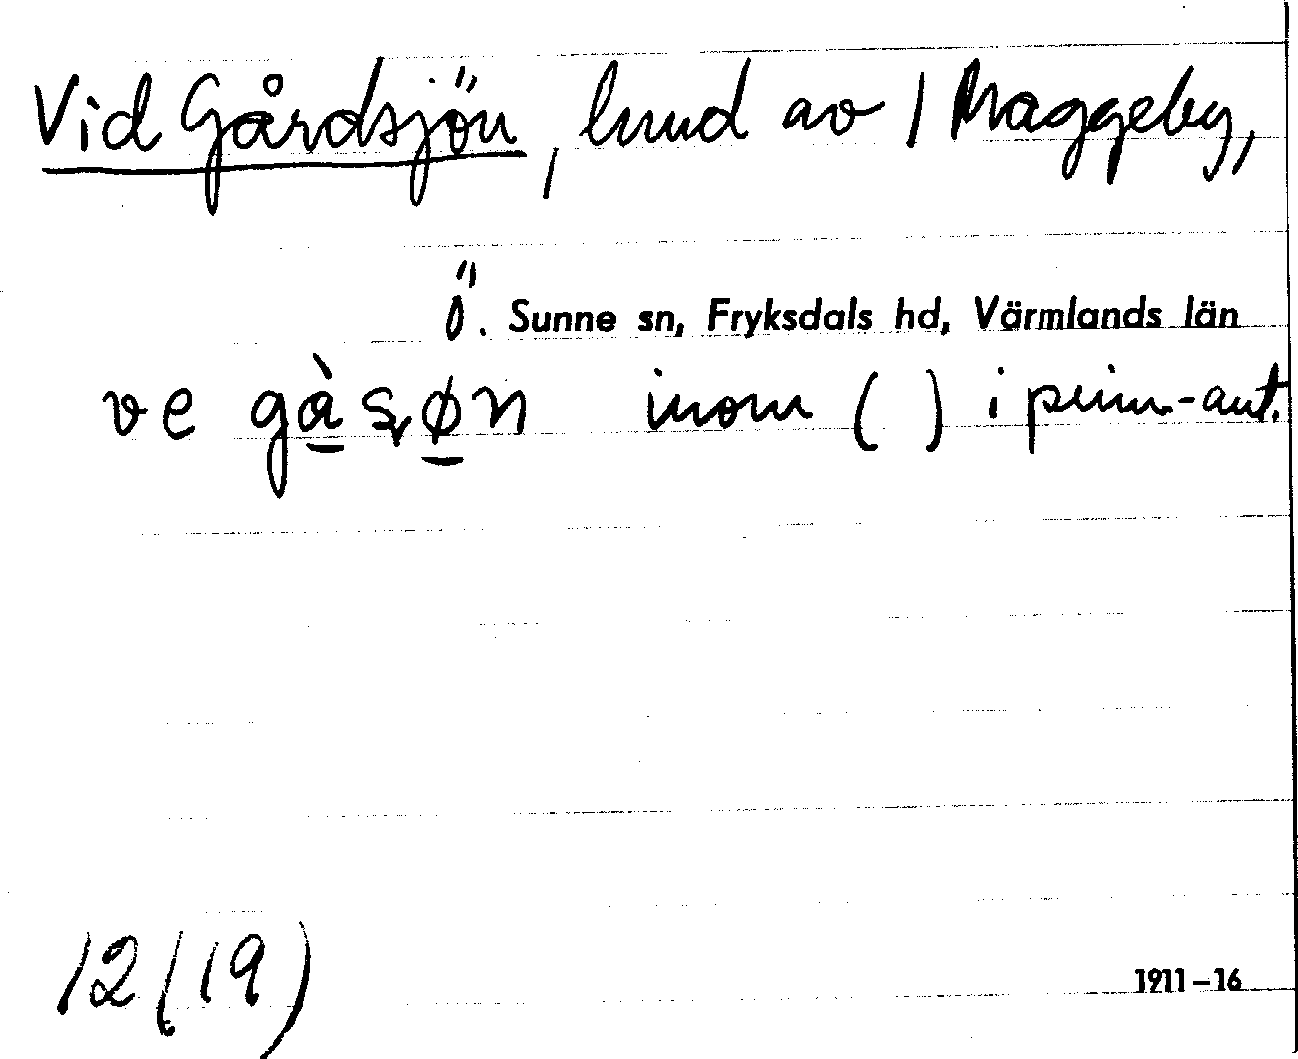 Vid Gårdsjön, hmd av 1 Maggeby,
Ö. Sunne sn, Fryksdals hd, Värmlands län
ve gàsøn inom ( ) i prim-ant.
12(19)
1911–16